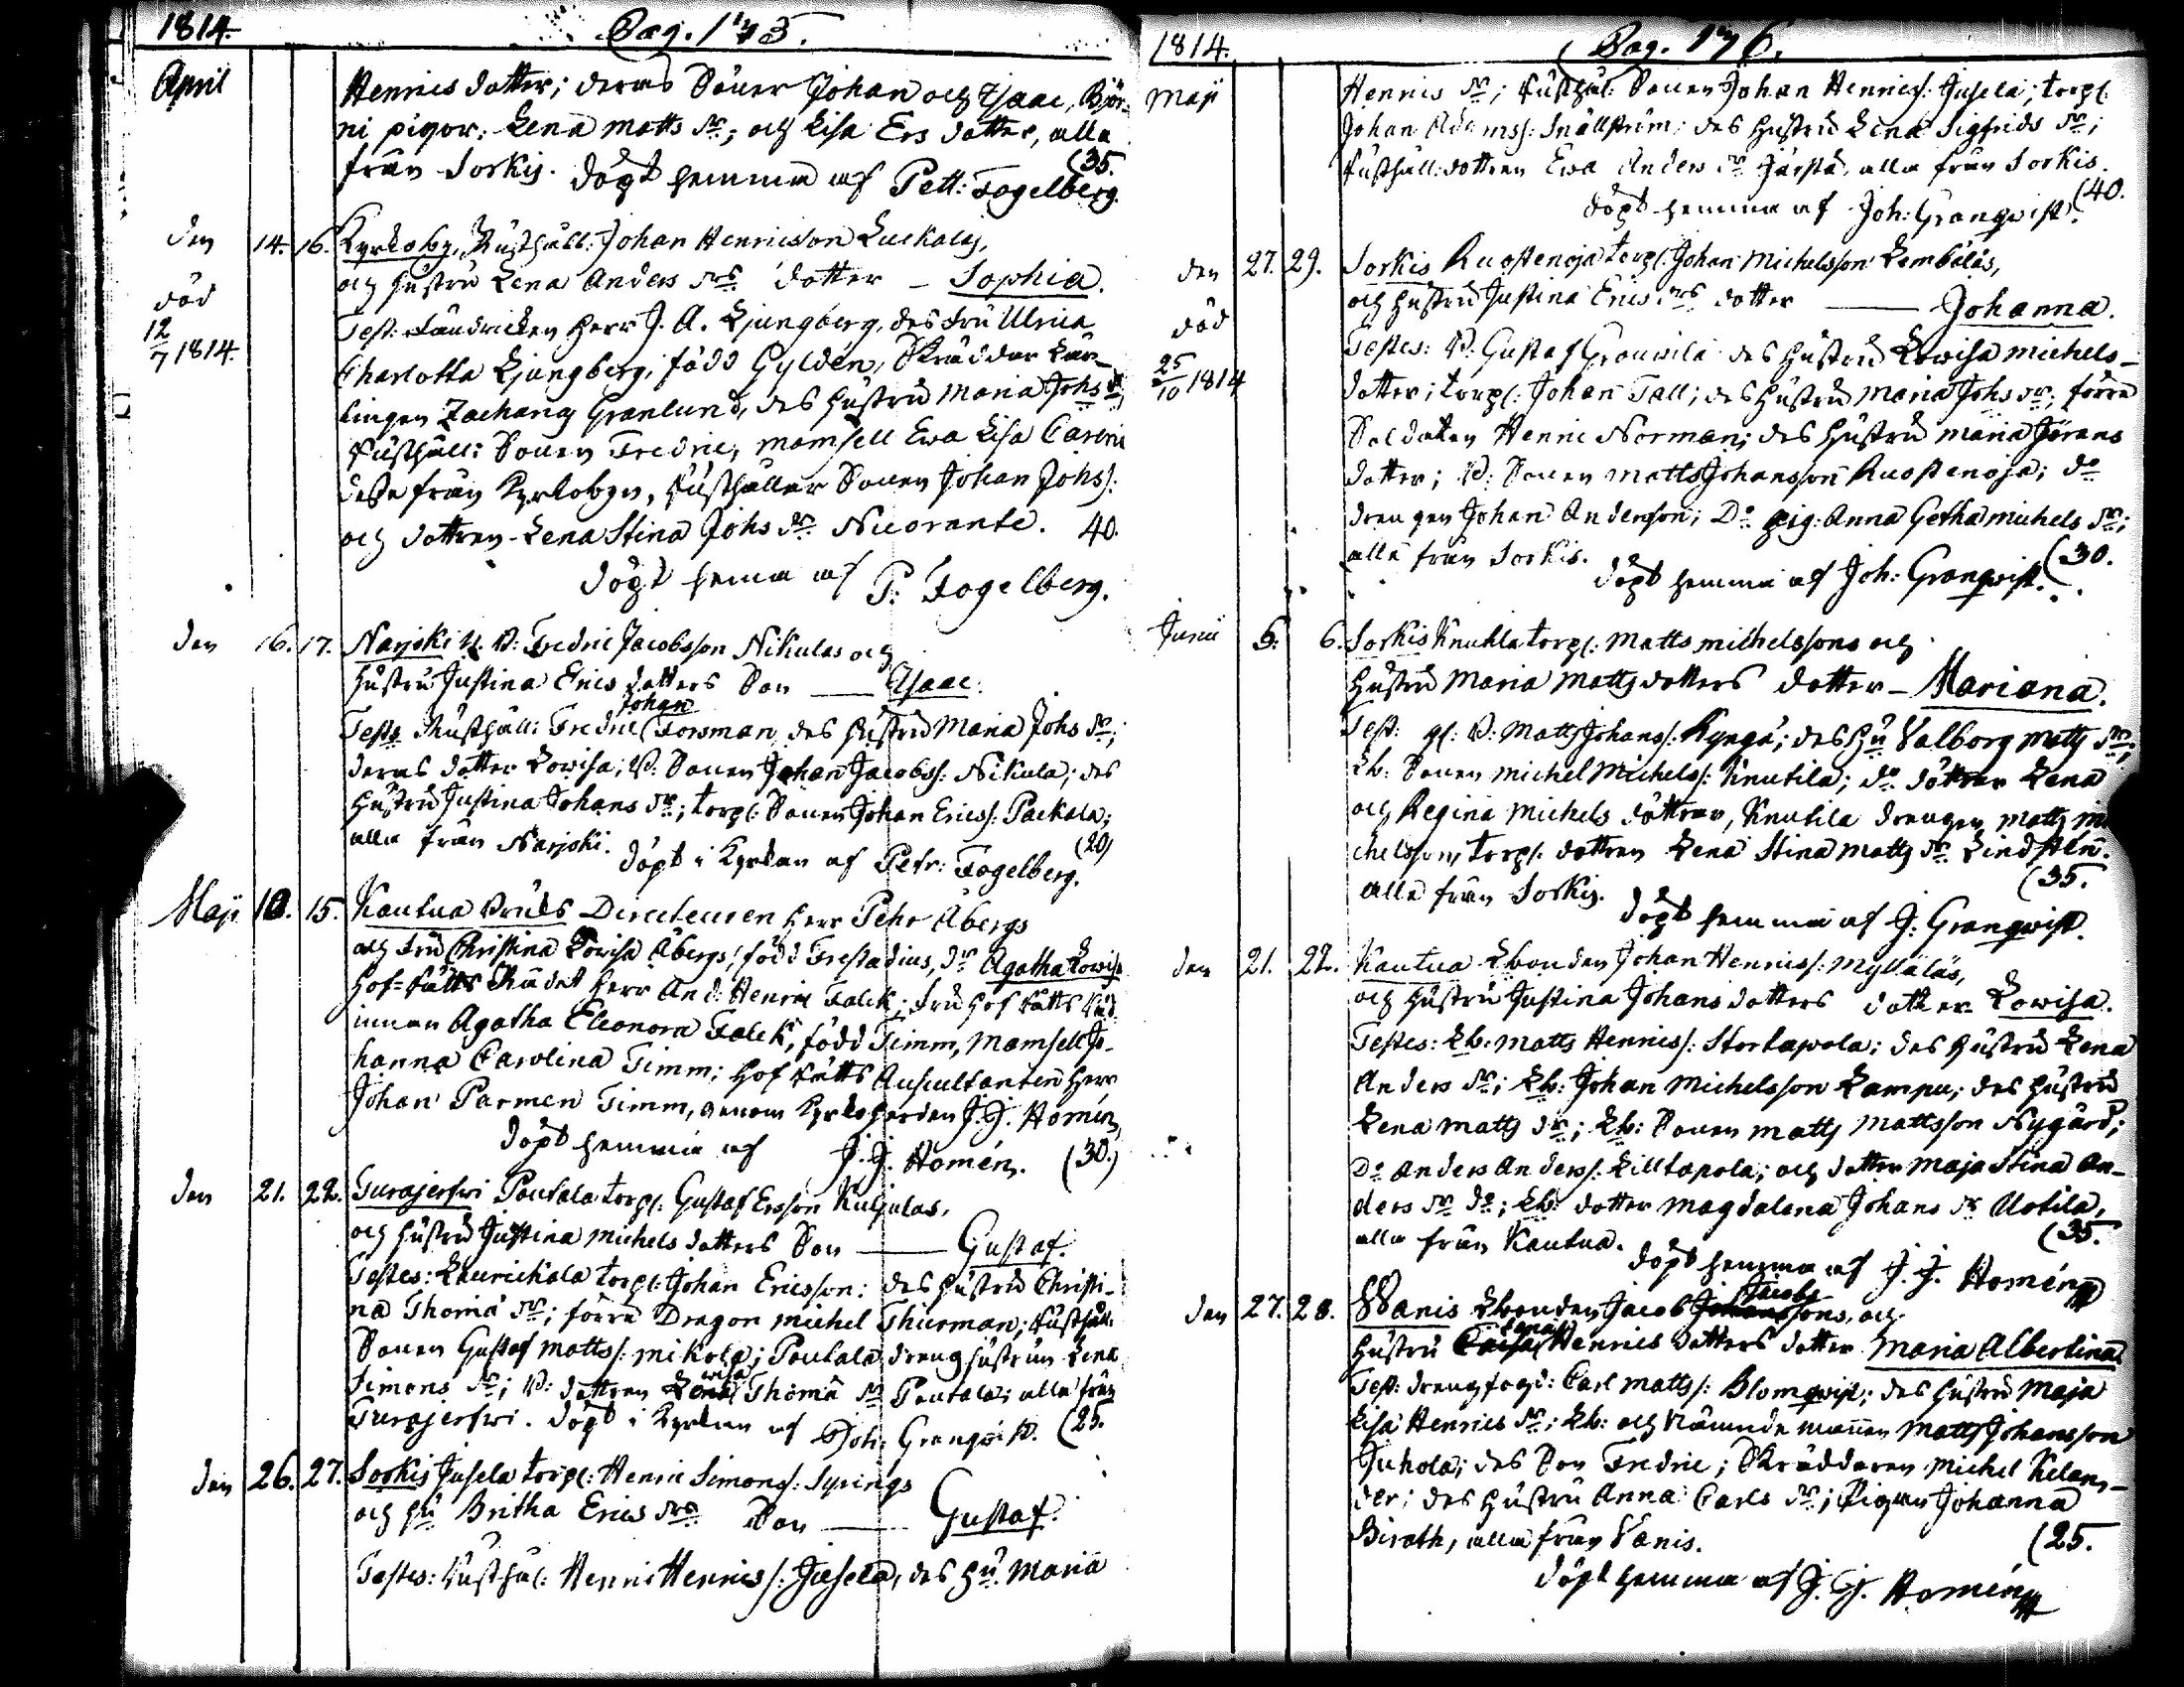 1814.
Pag. 175.
April
Henrics dotter; deras Söner Johan och Isaac, Björ-
ni pigor: Lena Matts dr; och Lisa Ers dotter, alla
från Sorkis.
(35.
döpt hemma af Pett: Fogelberg.
den 14. 16. Kyrkoby, Rusthåll: Johan Henricsson Luckalas,
och hustru Lena Anders drs dotter – Sophia.
död
12/7 1814.
Test: Fändricken Herr J. A. Ljungberg, des Fru Ulrica
Charlotta Ljungberg, född Gyldén, Skräddar Lär-
lingen Zacharias Granlund, des hustru Maria Johs dr,
Rusthåll: Sonen Fredric, Mamsell Ewa Lisa Careni
dessa från Kyrkobyn, Rusthållar Sonen Johan Johs:
och dottren Lena Stina Johs dr Nuorante. 40.
döpt hemma af P: Fogelberg.
den 16. 17. Narjoki U. B: Fredric Jacobsson Nikulas och
hustru Justina Erics dotters Son — Isaac.
Johan
Tests Rusthåll: Fredric Forsman, des hustru Maria Johs dr;
deras dotter Lowisa; B: Sonen Johan Jacobss: Nikula; des
hustru Justina Johans dr; torp: Sonen Johan Ericss: Packala;
alla från Narjoki.
(20)
döpt i Kyrkan af Petr: Fogelberg.
Maji 10. 15. Kautua Bruks Directeuren Herr Pehr Åbergs
och Fru Christina Lowisa Åbergs, född Frestadius, dr Agatha Lowisa
Hof-Rätts Rådet Herr And: Henric Falck; Fru Hof Rätts Råd
innan Agatha Eleonora Falck, född Timm, Mamsell Jo-
hanna Carolina Timm; Hof Rätts Auscultanten Herr
Johan Parmen Timm, genom Kyrkoherden J. J. Homén,
döpt hemma af J. J. Homén. (30.)
den 21. 22. Turajerfwi Poutala torp: Gustaf Ersson Kuhjulas,
och hustru Justina Michels dotters Son — Gustaf.
Testes: Laurickala torp: Johan Ericsson: des hustru Christi-
na Thoma dr; förra Dragon Michel Thurman; Rusthåll
Sonen Gustaf Mattss: Mikola; Poutala dreng hustrun Lena
Simons dr; B: dottren Lowisa Thoma dr Poutala; alla från
Turajerfwi. döpt i Kyrkan af Joh: Granqvist. (25.
den 26. 27. Sorkis Jusela torp: Henric Simonss: Syrings
och Hu Britha Erics drs Son — Gustaf.
Testes: Rusthål: Henric Henricss: Jusela, des Hu. Maria
1814.
Pag. 176.
Maji
Henrics dr; Rusthål: Sonen Johan Henricss: Jusela; torp:
Johan Adamss: Snällström; des hustru Lena Sigfrids dr;
Rusthåll: dottren Ewa Anders dr Järstä, alla från Sorkis.
(40.
döpt hemma af Joh: Granqvist.
den 27. 29. Sorkis Ruostenoja torp: Johan Michelsson Lembäläs,
och hustru Justina Erics drs dotter — Johanna.
död
25/10 1814
Testes: B: Gustaf Grouwila des hustru Lowisa Michels-
dotter; torp: Johan Tall; des hustru Maria Johs dr; förra
Soldaten Henric Norman; des hustru Maria Jörans
dotter; B: Sonen Matts Johansson Ruostenoja; do
drengen Johan Andersson; Do pig: Anna Getha Michels dr;
alla från Sorkis.
(30.
döpt hemma af Joh: Granqvist.
Junii 5. 6. Sorkis Knutila torp: Matts Michelssons och
hustru Maria Matts dotters dotter – Mariana.
Test: gl: B: Matts Johanss: Kynga; des Hu Valborg Matts dr;
Lb: Sonen Michel Michelss: Knutila; do döttrar Lena
och Regina Michels döttrar, Knutila drengen Matts Mi
chelsson, torp: dottren Lena Stina Matts dr Lindstén.
(35.
alla från Sorkis.
döpt hemma af J: Granqvist.
den 21. 22. Kautua Lbonden Johan Henricss: Mylläläs,
och hustru Justina Johans dotters dotter Lowisa.
Testes: Lb: Matts Henricss: Stortapola; des hustru Lena
Anders dr; Lb: Johan Michelsson Lampu; des hustru
Lena Matts dr; Lb: Sonen Matts Mattsson Nygård;
Do Anders Anderss: Lilltapola; och dotter Maja Stina An-
ders dr do; Lb: dotter Magdalena Johans dr Uotila,
alla från Kautua.
(35.
döpt hemma af J. J. Homén
Jacobs
den 27. 28. Wanis Lbonden Jacob Johanssons, och
hustru Caisa Henrics dotters dotter Maria Albertina
Test: drengfogd: Carl Mattss: Blomqvist; des hustru Maja
Lisa Henrics dr; Lb: och Nämnde mannen Matts Johansson
Juhola; des Son Fredric; Skräddaren Michel Kelan-
der; des hustru Anna Carls dr; Pigan Johanna
Birath, alla från Vanis. (25.
döpt hemma af J. J. Homén